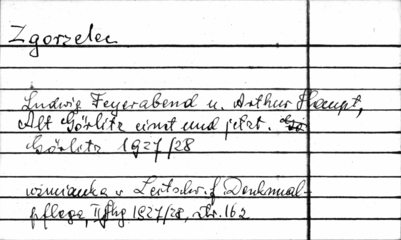 Zgorzelec
Ludwig Feyerabend u. Arthur Haupt,
Alt Görlitz einst und jetzt.
Görlitz 1927/28
wzmianka w Zeitschr. f. Denkmal-
pflege, II Jhg 1927/28, str. 162